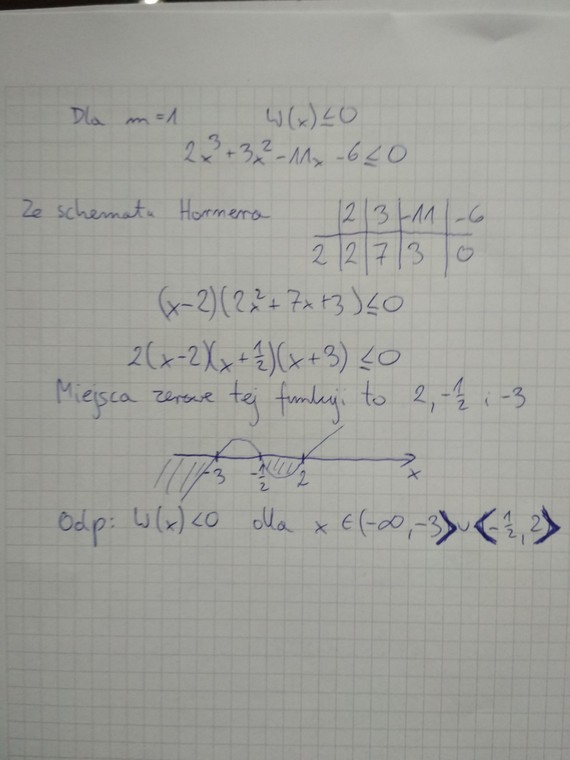 Dla m=1 W(x)≤0
2x³+3x²-11x-6≤0
Ze schematu Hornera
2 3 -11 -6
2 2 7 3 0
(x-2)(2x²+7x+3)≤0
2(x-2)(x+½)(x+3)≤0
Miejsca zerowe tej funkcji to 2, -½ i -3
-3 -½ 2 x
Odp: W(x)<0 dla x∈(-∞,-3⟩∪⟨-½,2⟩